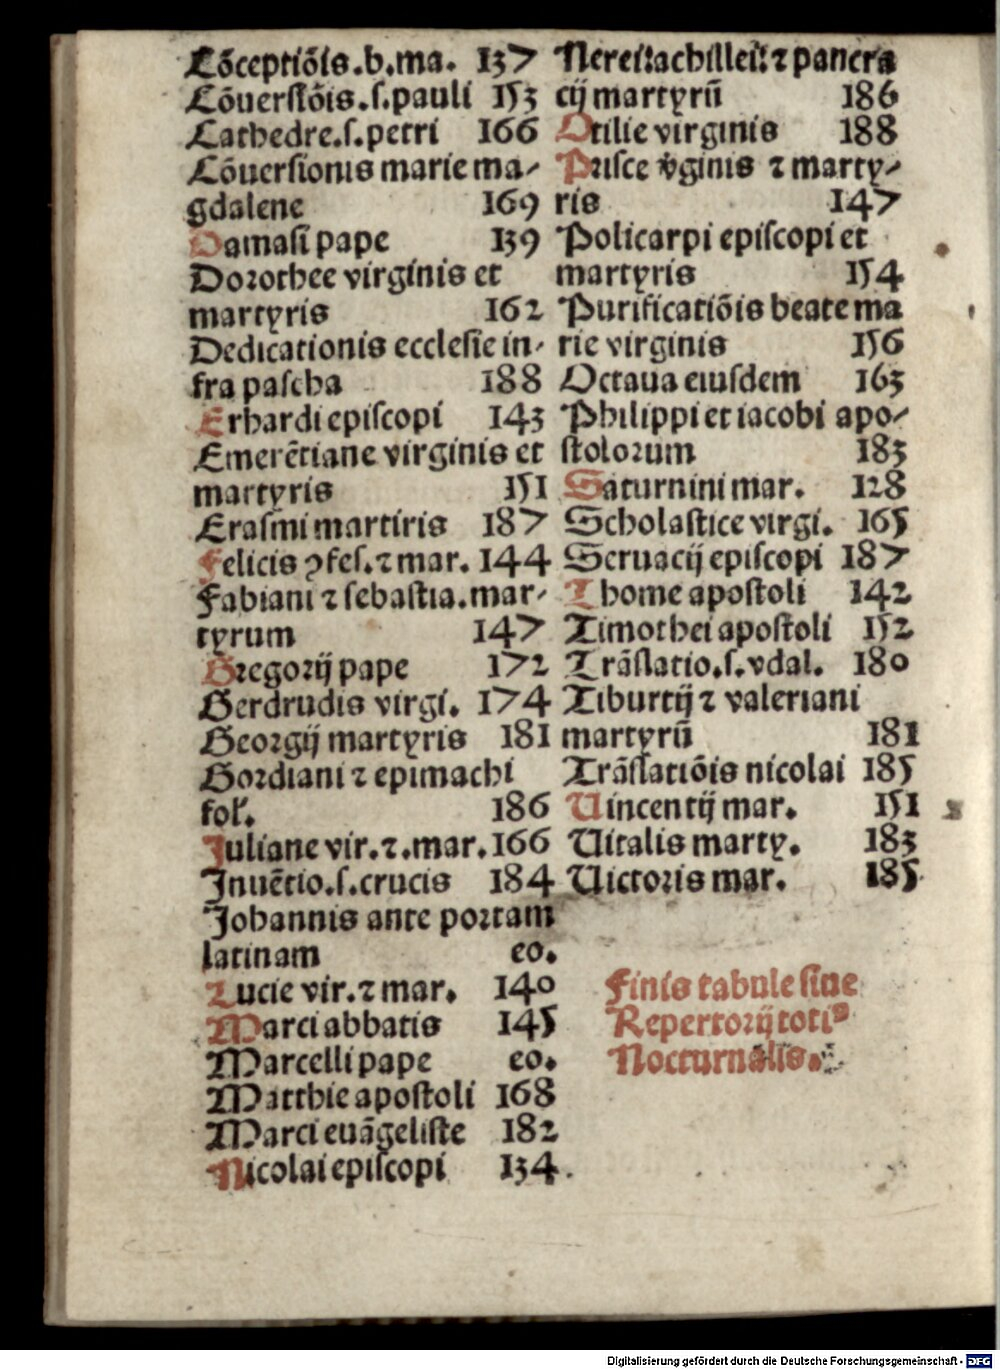 Cōceptiōis.b.ma. 137
Cōuersiōis.s.pauli 153
Cathedre.s.petri 166
Cōuersionis marie ma-
gdalene 169
Damasi pape 139
Dorothee virginis et
martyris 162
Dedicationis ecclesie in-
fra pascha 188
Erhardi episcopi 143
Emerētiane virginis et
martyris 151
Erasmi martiris 187
Felicis ꝯfes.⁊ mar. 144
Fabiani ⁊ sebastia.mar-
tyrum 147
Gregorij pape 172
Gerdrudis virgi. 174
Georgij martyris 181
Gordiani ⁊ epimachi
fol. 186
Juliane vir.⁊.mar. 166
Inuētio.s.crucis 184
Johannis ante portam
latinam eo.
Lucie vir.⁊ mar. 140
Marci abbatis 145
Marcelli pape eo.
Matthie apostoli 168
Marci euāgeliste 182
Nicolai episcopi 134.
Nerei: achillei: ⁊ pancra
cij martyrū 186
Otilie virginis 188
Prisce v̄ginis ⁊ marty-
ris 147
Policarpi episcopi et
martyris 154
Purificatiōis beate ma
rie virginis 156
Octaua eiusdem 163
Philippi et iacobi apo-
stolorum 183
Saturnini mar. 128
Scholastice virgi. 165
Seruacij episcopi 187
Thome apostoli 142
Timothei apostoli 152
Trāslatio.s.vdal. 180
Tiburtij ⁊ valeriani
martyrū 181
Trāslatiōis nicolai 185
Uincentij mar. 151
Uitalis marty. 183
Uictoris mar. 185
Finis tabule siue
Repertorij totiꝰ
Nocturnalis.
Digitalisierung gefördert durch die Deutsche Forschungsgemeinschaft - DFG